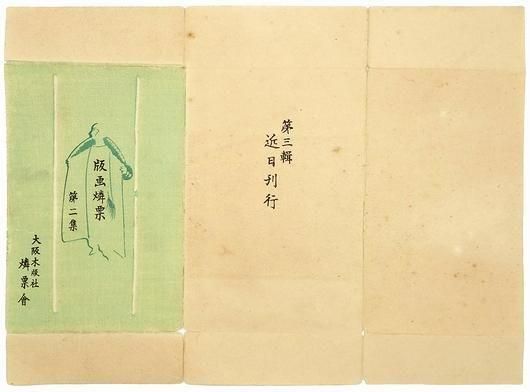 第三輯
近日刊行
版画燐票
第二集
大阪木版社
燐票會